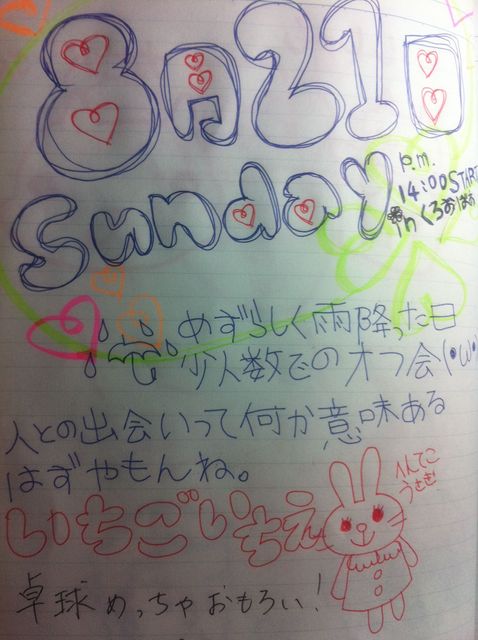 8月21日
Sunday
p.m.
14:00 START
in くろすばぁ
めずらしく雨降った日
少人数でのオフ会(•ω•
人との出会いって何か意味ある
はずやもんね。
いちごいちえ
へんてこ
うさぎ
卓球めっちゃおもろい!